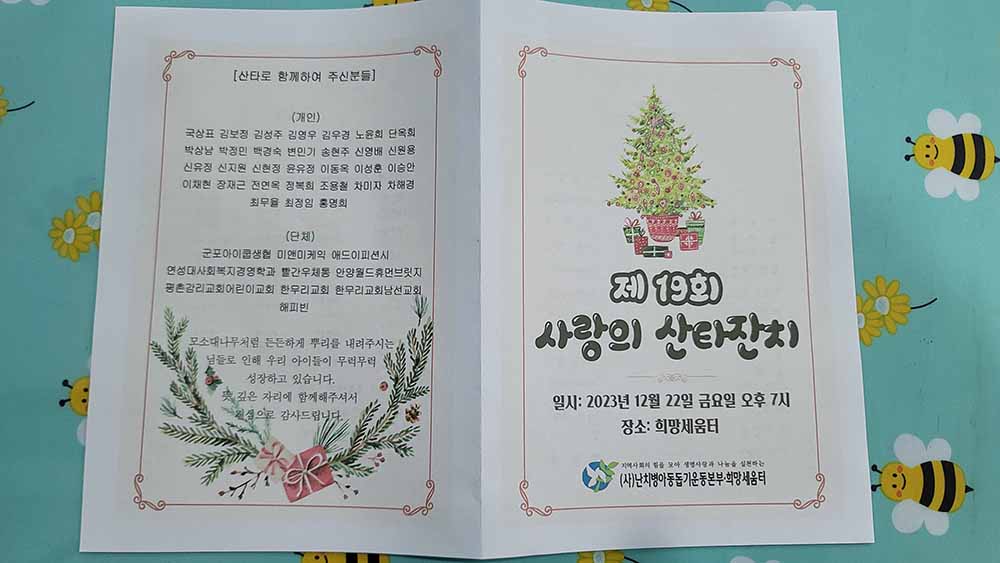 [산타로 함께하여 주신분들]
(개인)
국상표 김보정 김성주 김영우 김우경 노윤희 단옥희
박상남 박정민 백경숙 변민기 송현주 신영배 신원용
신유정 신지원 신현정 윤유정 이동옥 이성훈 이승안
이채현 장재근 전연옥 정복희 조용철 차미자 차해경
최무율 최정임 홍명희
(단체)
군포아이쿱생협 미앤미케익 애드이피션시
연성대사회복지경영학과 빨간우체통 안양월드휴먼브릿지
평촌감리교회어린이교회 한무리교회 한무리교회남선교회
해피빈
모소대나무처럼 든든하게 뿌리를 내려주시는
님들로 인해 우리 아이들이 무럭무럭
성장하고 있습니다.
뜻 깊은 자리에 함께해주셔서
진정으로 감사드립니다.
제 19회
사랑의 산타잔치
일시: 2023년 12월 22일 금요일 오후 7시
장소: 희망세움터
지역사회의 힘을 모아 생명사랑과 나눔을 실천하는
(사)난치병아동돕기운동본부·희망세움터